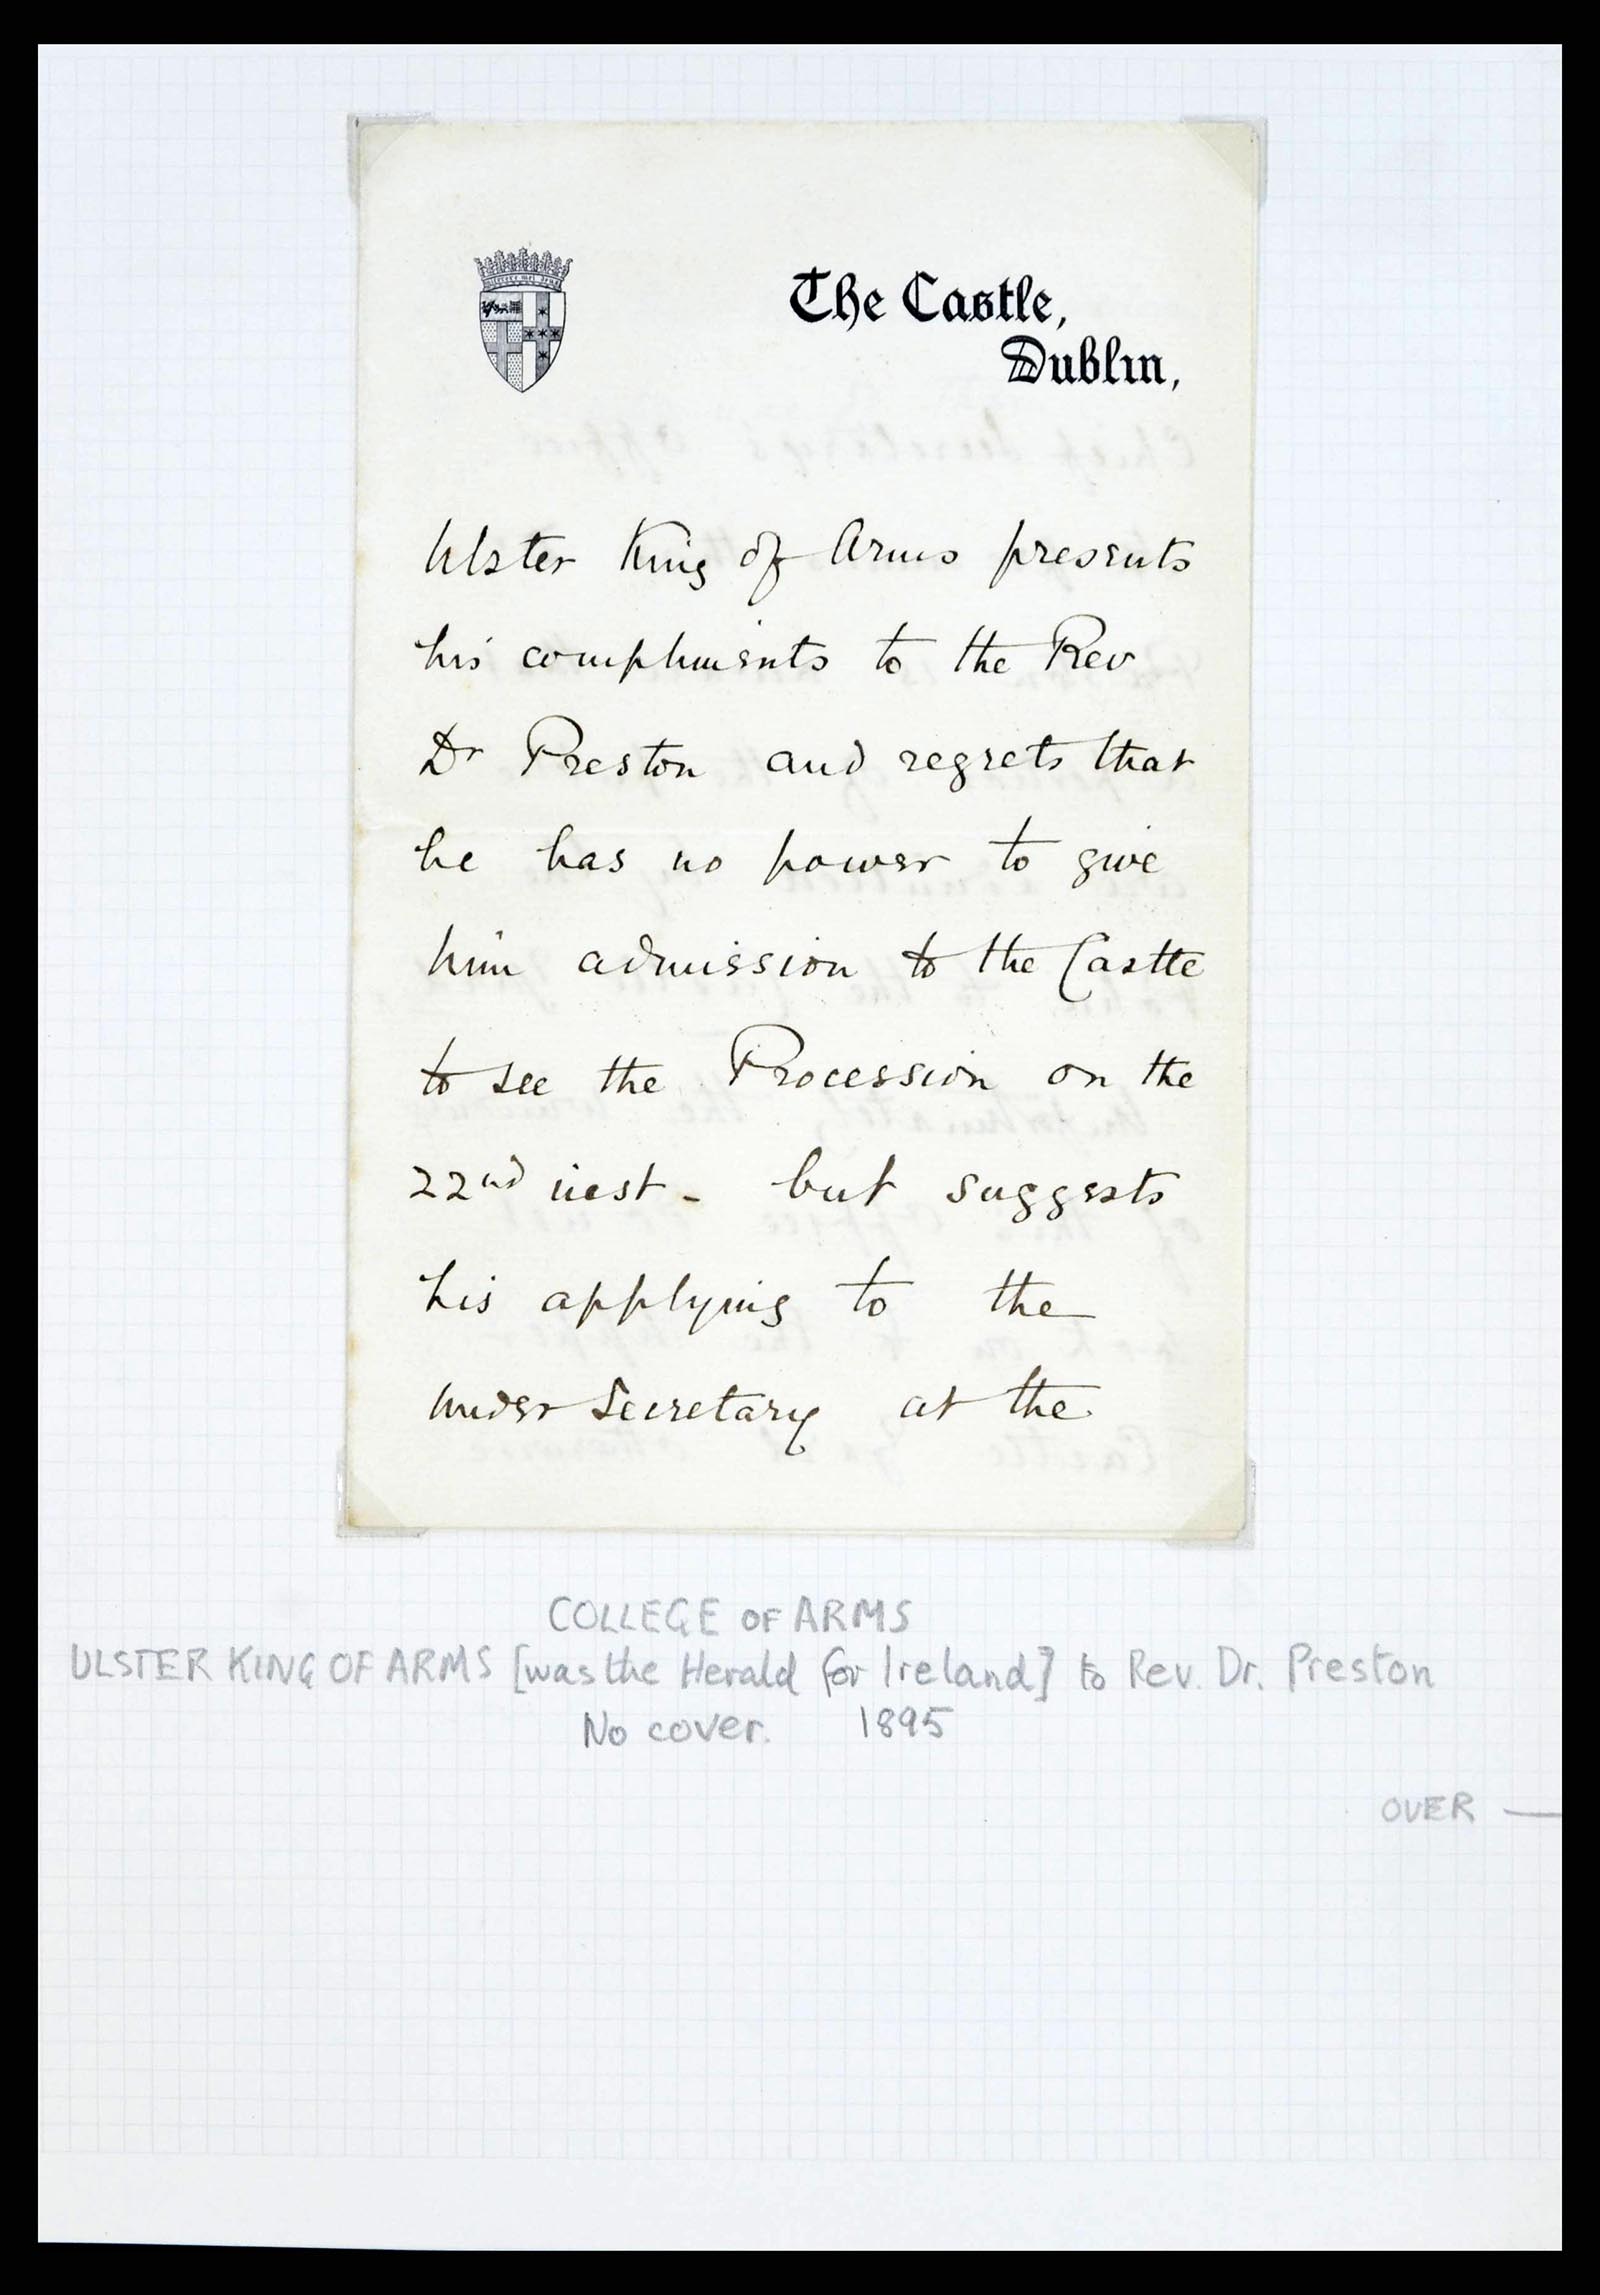 The Castle,
Dublin,
Ulster King of Arms presents
his compliments to the Rev
Dr Preston and regrets that
he has no power to give
him admission to the Castle
to see the Procession on the
22nd inst - but suggests
his applying to the
Under Secretary at the
COLLEGE OF ARMS
ULSTER KING OF ARMS [was the Herald for Ireland] to Rev. Dr. Preston
No cover. 1895
OVER —